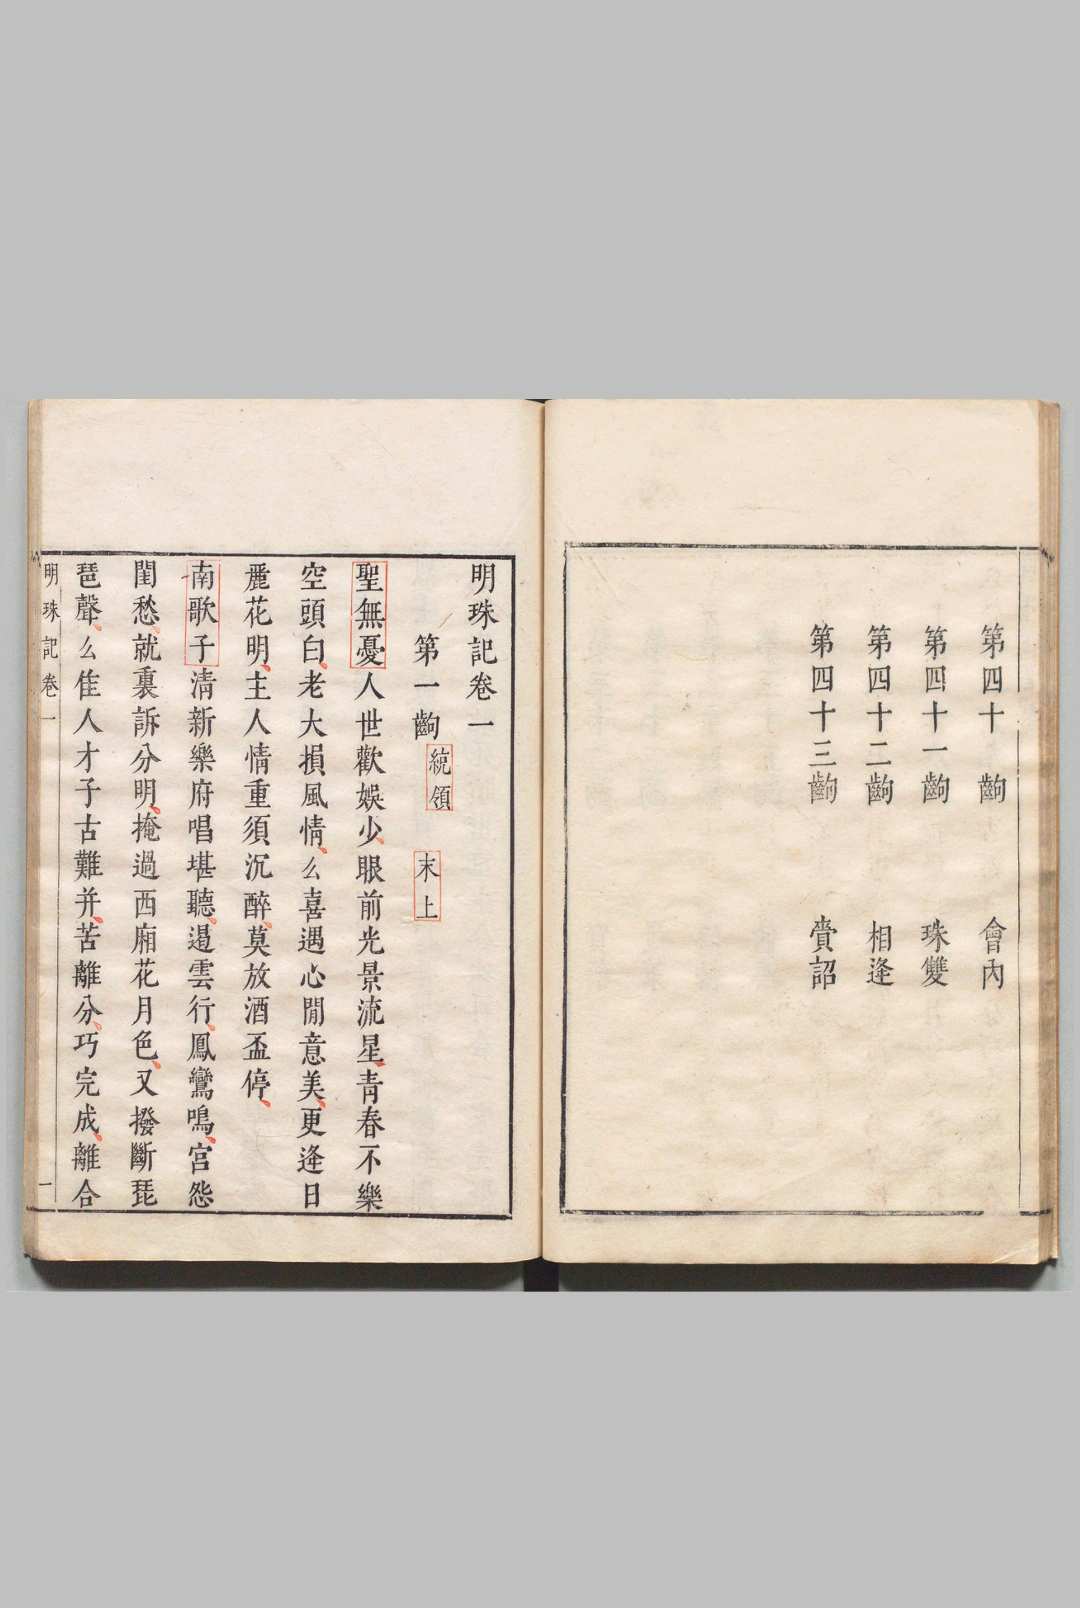 第四十　齣　會內
第四十一齣　珠雙
第四十二齣　相逢
第四十三齣　賫詔
明珠記卷一
第一齣　統領　末上
聖無憂人世歡娛少眼前光景流星青春不樂
空頭白老大損風情么喜遇心閒意美更逢日
麗花明主人情重須沉醉莫放酒盃停
南歌子清新樂府唱堪聽遏雲行鳳鸞鳴宮怨
閨愁就裏訴分明掩過西廂花月色又撥斷琵
琶聲么佳人才子古難并苦離分巧完成離合
明珠記卷一　一